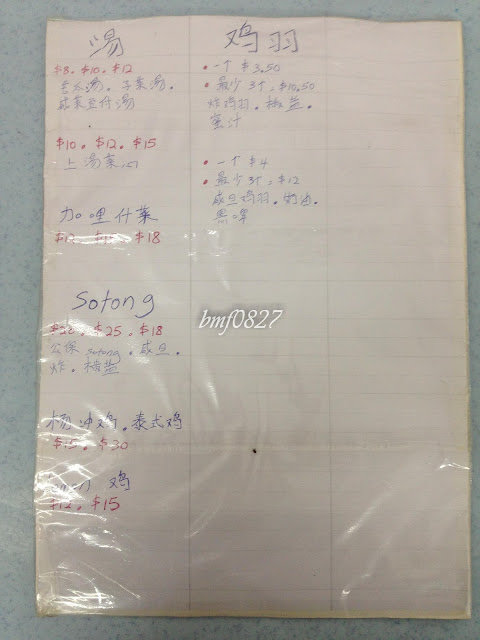 汤
$8. $10. $12
老太汤. 子菜汤.
咸菜豆付汤
$10. $12. $15
上汤菜
加哩什菜
$18
Sotong
$25. $18
公保 sotong. 咸旦.
炸. 椒盐
杨冲鸡. 泰式鸡
$15. $30
鸡
$12. $15
鸡羽
• 一个 $3.50
• 最少 3个, $10.50
炸鸡羽. 椒盐.
蜜汁
• 一个 $4
• 最少 3个, $12
咸旦鸡羽. 奶油.
黑啤
bmf0827